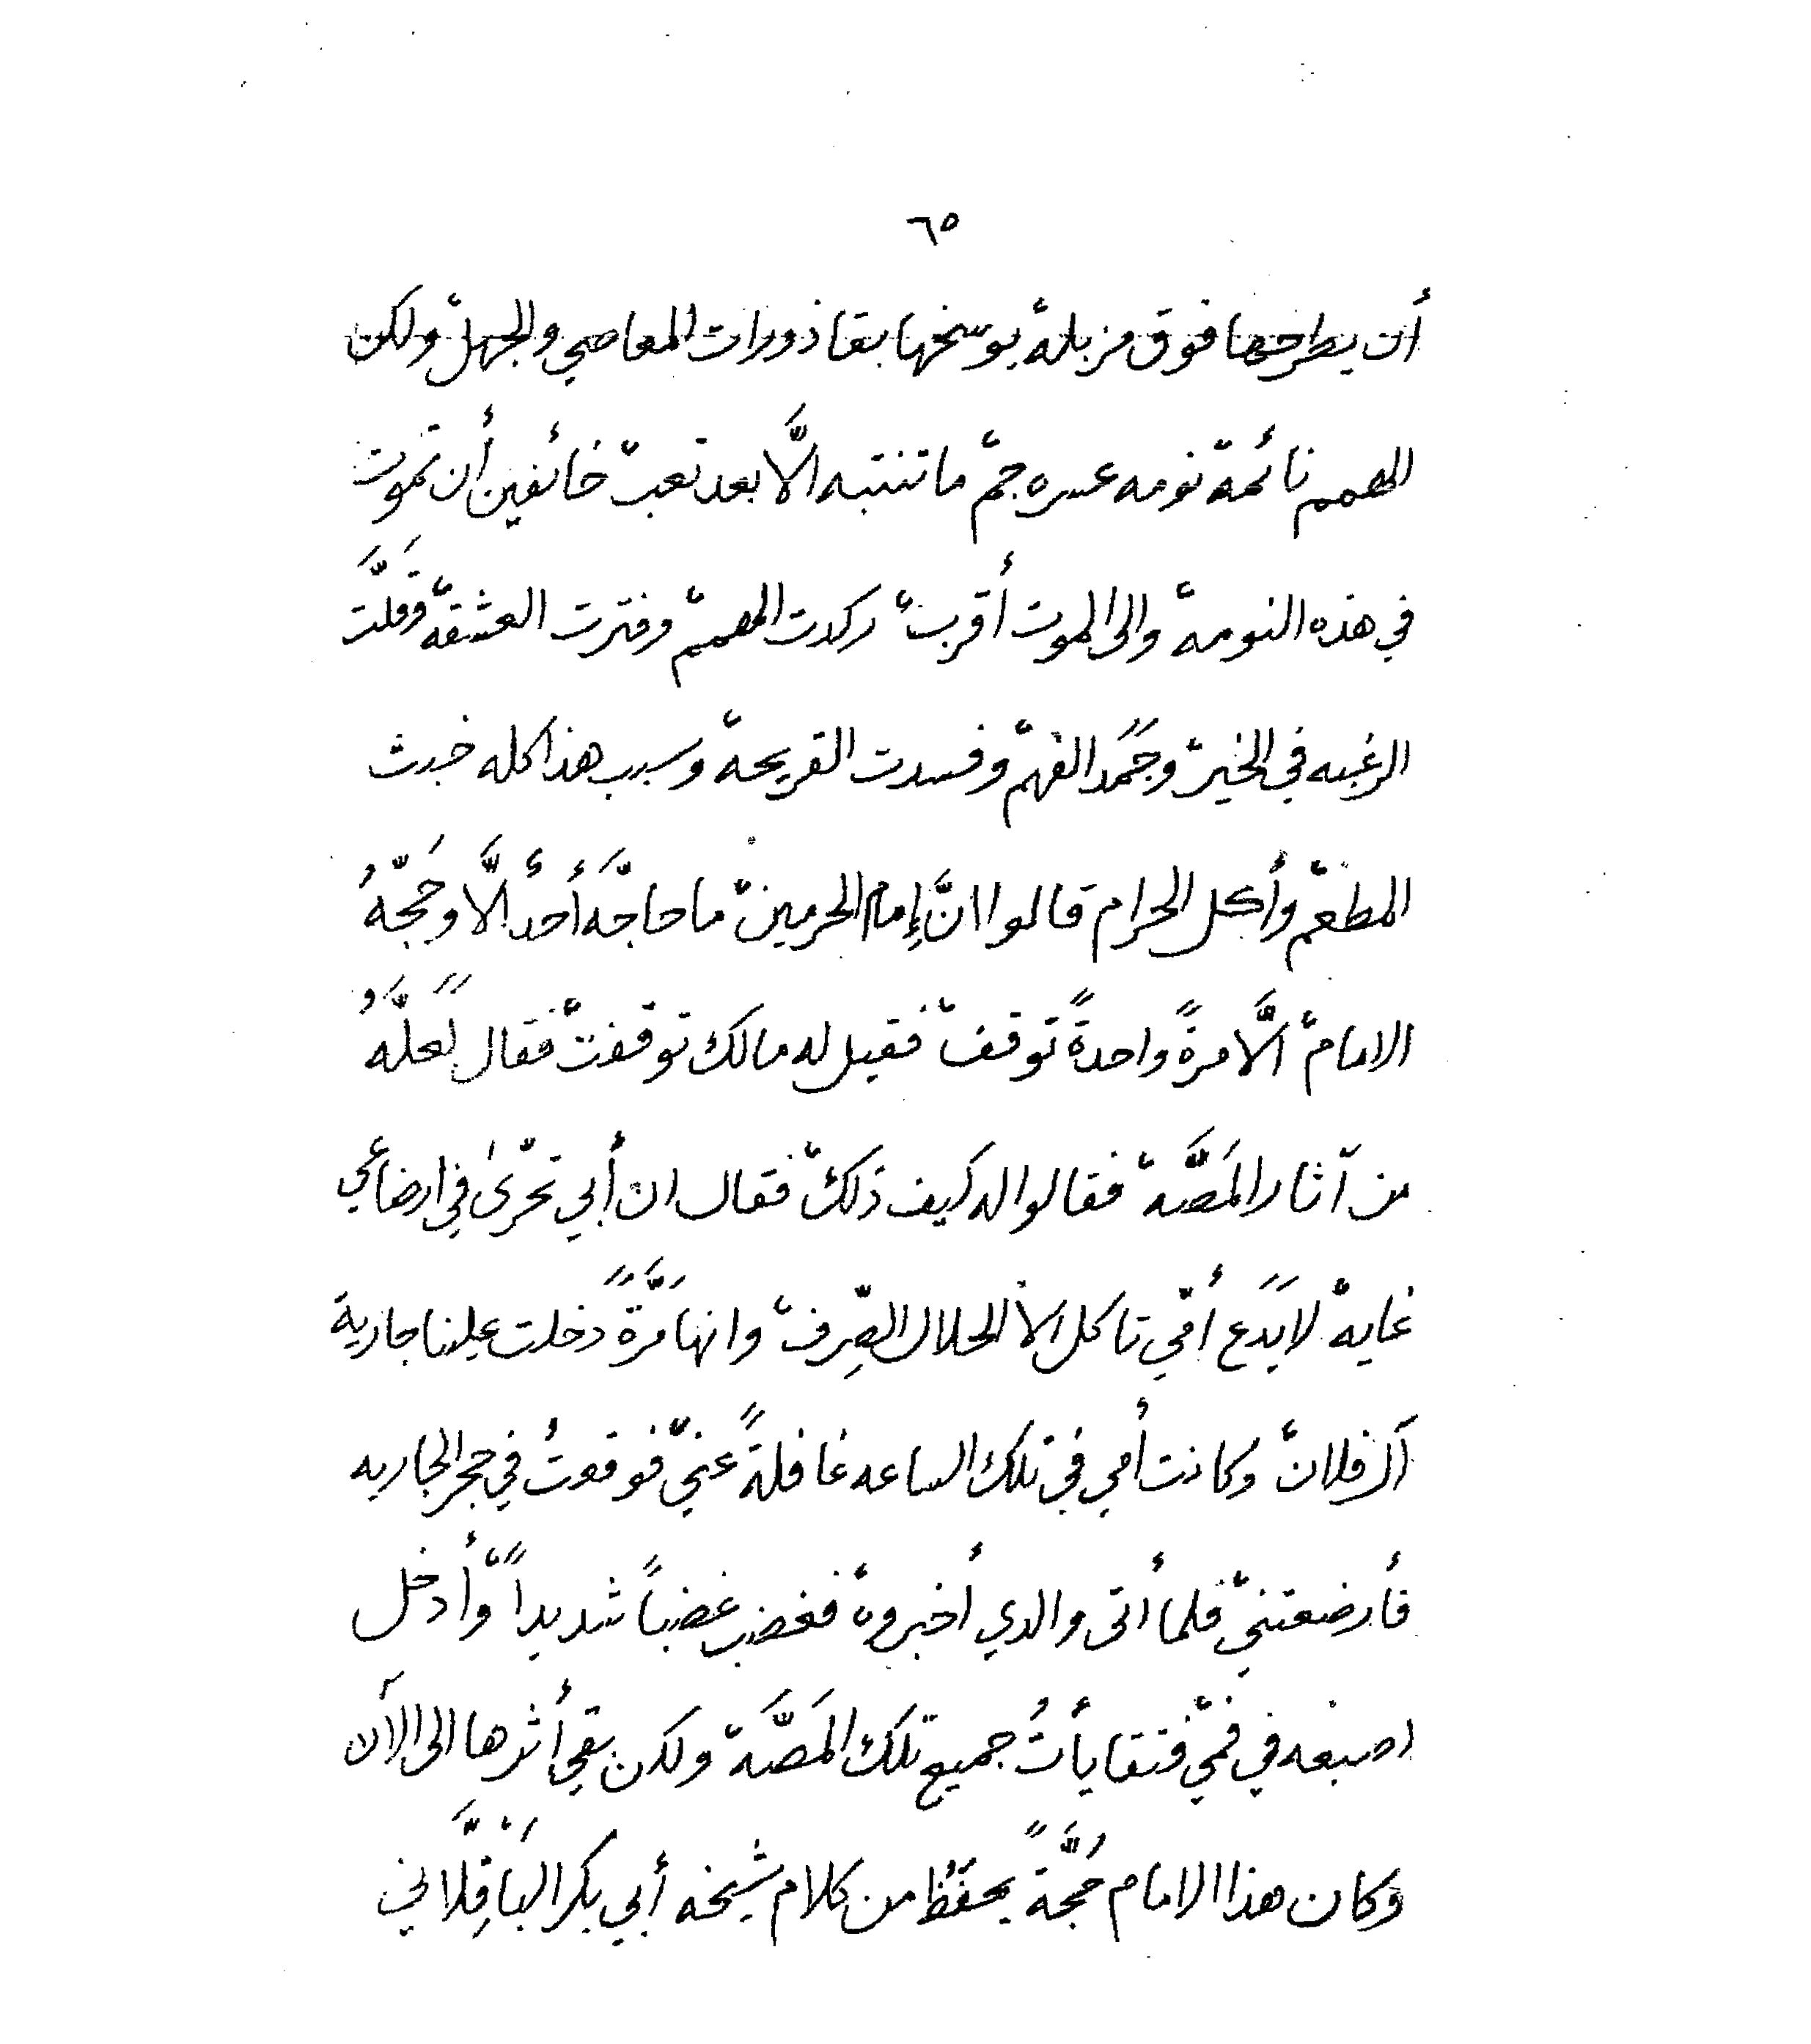 ٦٥
أن يطرحها فوق مزبلهْ يوسّخها بقاذورات المعاصي والجهلْ ولكن
الهمم نائمة نومه عسره جمْ ما تنتبه الَّا بعد تعبْ خائفين أن تموت
في هذه النومهْ والى الموت أقربْ ركدت الهممْ وفترت العشقهْ وقَلَّت
الرغبه في الخيرْ وجَمَد الفهمْ وفسدت القريحهْ وسبب هذا كله خبث
المطعمْ وأكل الحرام قالوا انَّ إمام الحرمينْ ما حاجَّه أحدٌ الَّا وحَجّهُ
الامامْ الَّا مرةً واحدةً توقفْ فقيل له مالك توقفتْ فقال لَعَلَّهُ
من آثار المَصَّهْ فقالوا له كيف ذلكْ فقال ان أبي تحرّىٰ في ارضاعي
غايهْ لا يَدَع أمّي تاكل الا الحلال الصِّرفْ وانها مَرَّةً دخلت علينا جارية
آل فلانْ وكانت أمي في تلك الساعه غافلةً عنيّ فوقعتُ في حجر الجاريه
فأرضعتنيْ فلما أتى والدي أخبروهْ فغضب غضباً شديداً وأدخل
اصبعه في فميْ فتقايأتُ جميع تلك المَصَّهْ ولكن بقي أثرها الى الآن
وكان هذا الامام حُجَّةً يحفَظُ من كلام شيخه أبي بكر البَاقِلَّاني